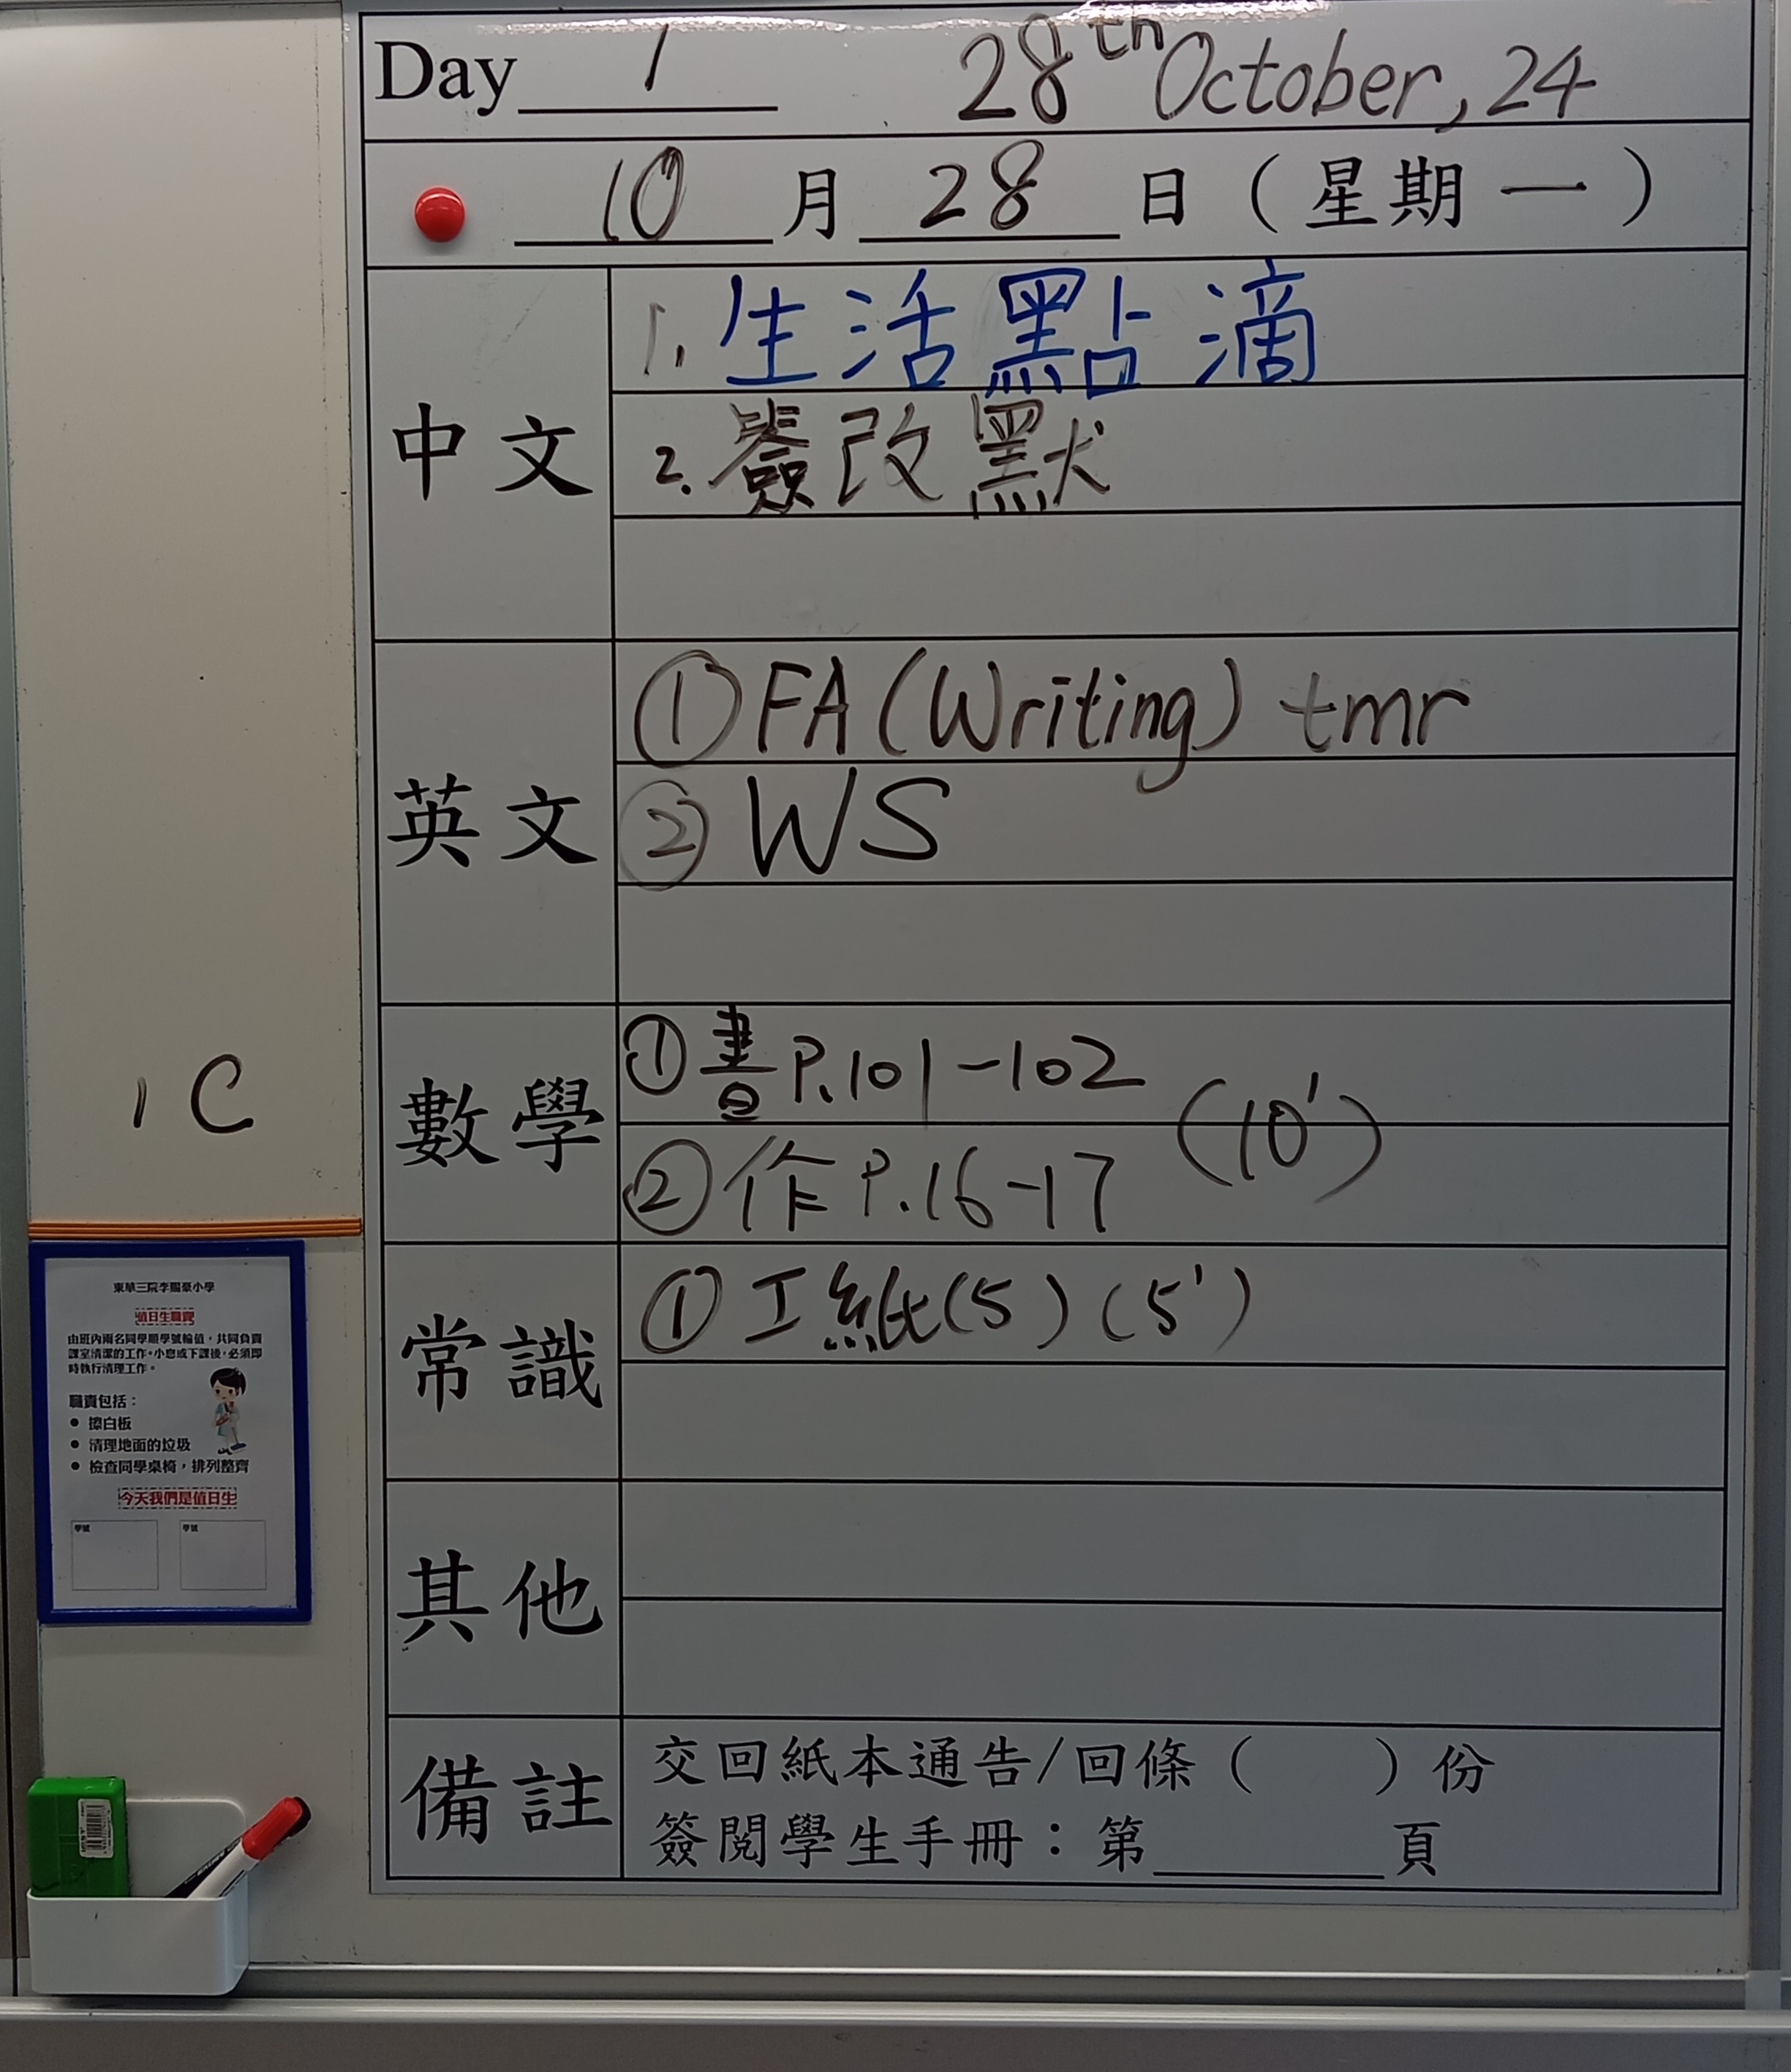 Day 1 28th October, 24
10 月 28 日 ( 星期一 )
中文
1. 生活點滴
2. 簽改默
英文
① FA (Writing) tmr
② WS
數學
① 書 P.101-102
② 作 P.16-17
(10')
常識
① 工紙(5) (5')
其他
備註
交回紙本通告/回條 ( ) 份
簽閱學生手冊：第______頁
1C
東華三院李賜豪小學
值日生職責
由班內兩名同學順學號輪值，共同負責
課室清潔的工作。小息或下課後，必須即
時執行清理工作。
職責包括：
● 擦白板
● 清理地面的垃圾
● 檢查同學桌椅，排列整齊
今天我們是值日生
學號 學號